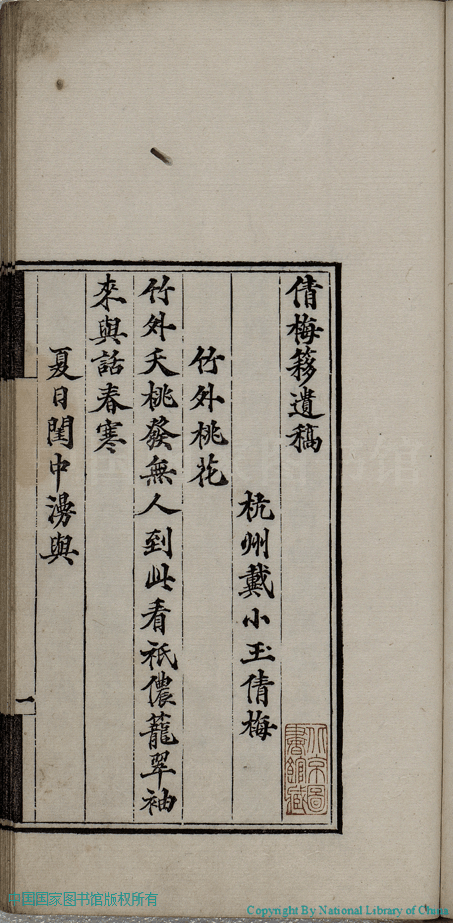 倩梅簃遺稿
杭州戴小玉倩梅
竹外桃花
竹外夭桃發無人到此看祇儂籠翠袖
來與話春寒
夏日閨中漫興
一
北京圖
書館藏
中国国家图书馆版权所有
Copyright By National Library of China